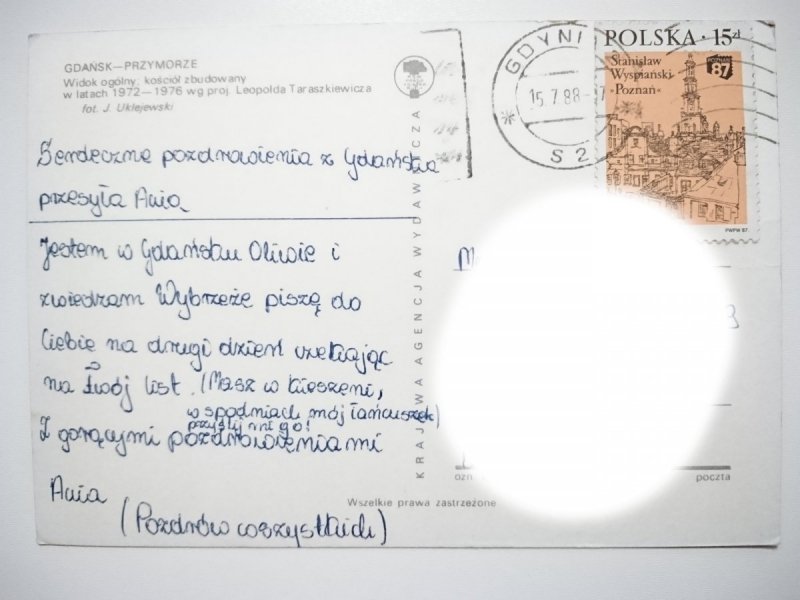 GDAŃSK—PRZYMORZE
Widok ogólny: kościół zbudowany
w latach 1972—1976 wg proj. Leopolda Taraszkiewicza
fot. J. Uklejewski
Serdeczne pozdrowienia z Gdańska
przesyła Ania
Jestem w Gdańsku Oliwie i
zwiedzam Wybrzeże piszę do
Ciebie na drugi dzień czekając
na Twój list. (Masz w kieszeni,
w spodniach mój łańcuszek)
przyślij mi go!
Z gorącymi pozdrowieniami
Ania
(Pozdrów wszystkich)
KRAJOWA AGENCJA WYDAWNICZA
Wszelkie prawa zastrzeżone
GDYNI
15.7.88
* S 2
POLSKA · 15 zł
Stanisław
Wyspiański
»Poznań«
POZNAŃ
87
PWPW 87
poczta